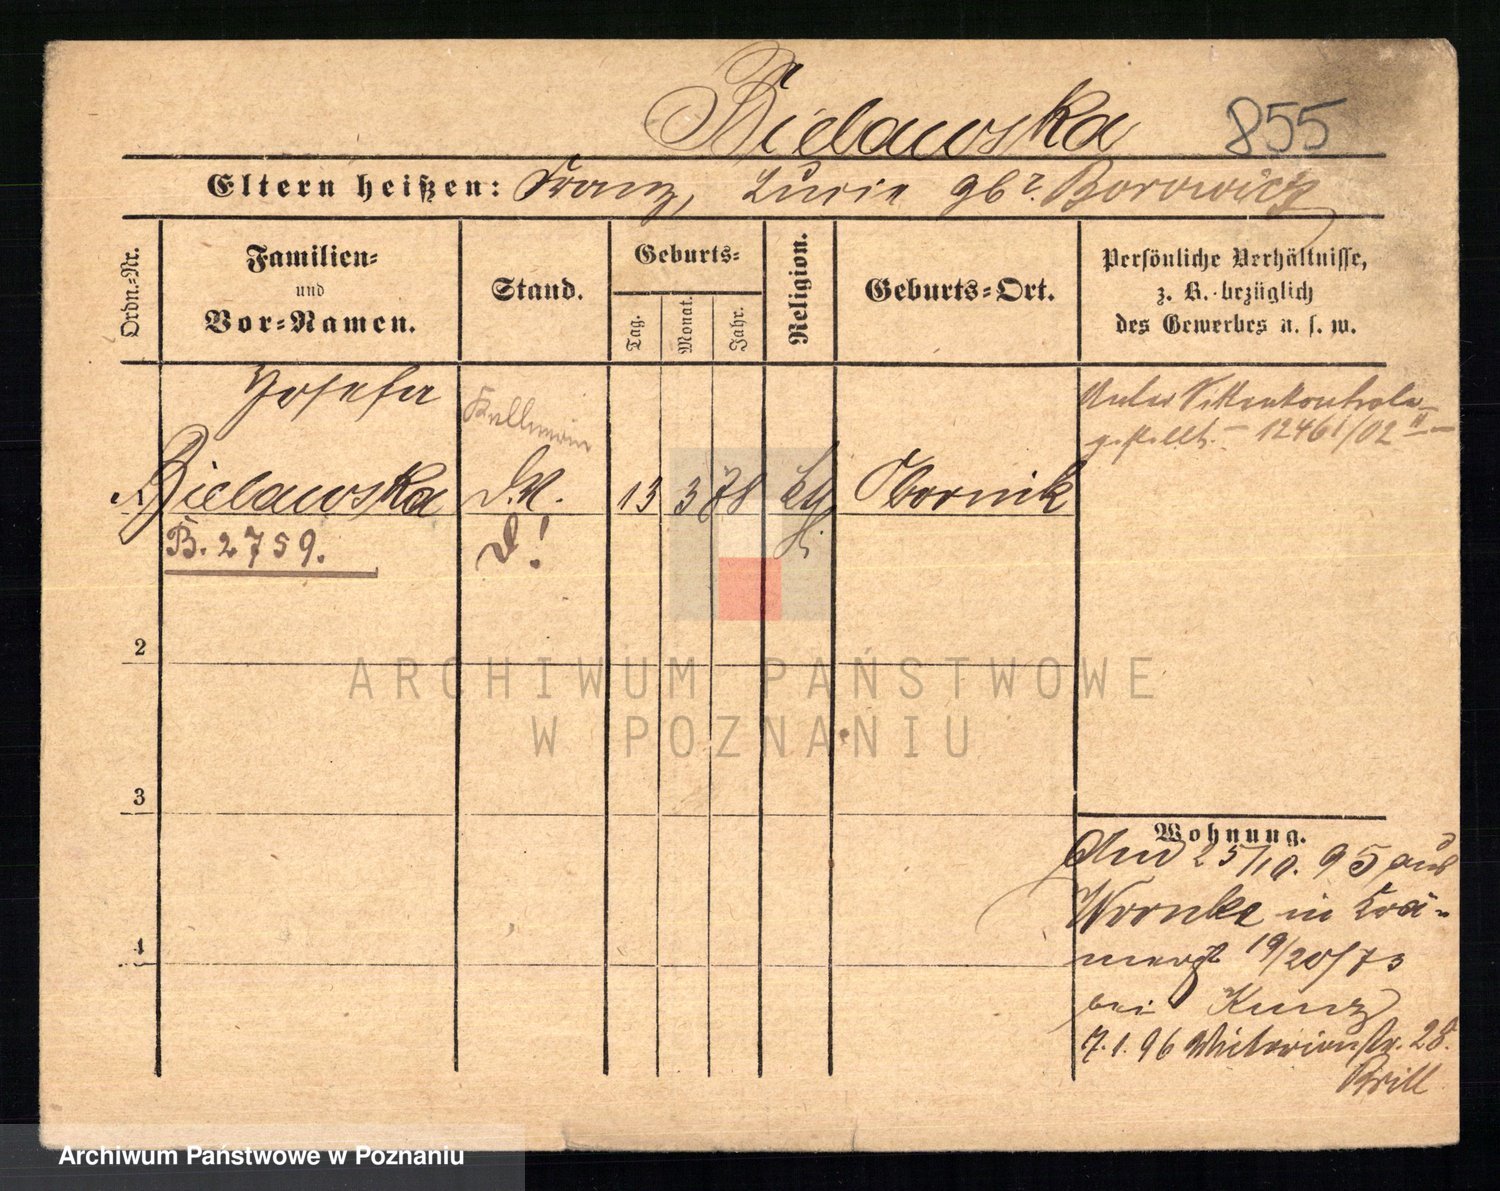 Bielawska 855
Eltern heißen: Franz, Lucie gb. Borowicz
Ordn.-Nr.
Familien-
und
Vor-Namen.
Stand.
Geburts-
Tag.
Monat.
Jahr.
Religion.
Geburts-Ort.
Persönliche Verhältnisse,
z. B. bezüglich
des Gewerbes u. s. w.
Josefa
Kellnerin
Unter Sittenkontrole
gestellt. - 1246 /02
Bielawska D.M. 13 3 78 Obornik
B. 2759.
D!
2
3
4
Wohnung.
25/10. 95 aus
Wronke in Krä-
merst 19/20/73
bei Kunz
7.1.96 Viktoriastr. 28.
Brill
ARCHIWUM PAŃSTWOWE
W POZNANIU
Archiwum Państwowe w Poznaniu